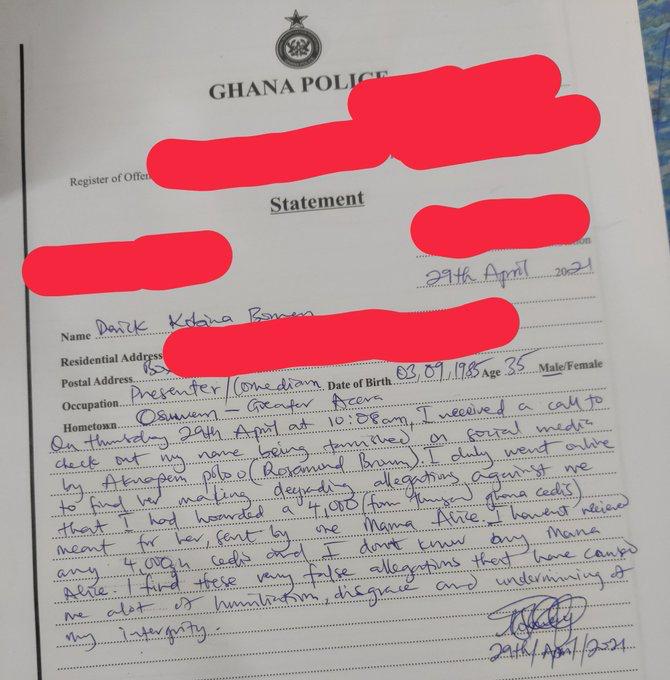 GHANA POLICE
Register of Offen
Statement
29th April 2021
Name Darick Kobina Bonney
Residential Address
Postal Address Box
Occupation Presenter/Comedian Date of Birth 03,09,1985 Age 35 Male/Female
Hometown Osuwem – Greater Accra
On thursday 29th April at 10:08am, I received a call to
check out my name being tarnished on social media
by Akuapem poloo (Rosamund Brown). I duly went online
to find her making degrading allegations against me
that I had hoarded a 4,000 (four thousand ghana cedis)
meant for her, sent by one Mama Alice. I havent recieved
any 4,000gh cedis and I dont know any Mama
Alice. I find these very false allegations that have caused
me alot of humiliation, disgrace and undermining of
my intergrity.
29th/April/2021